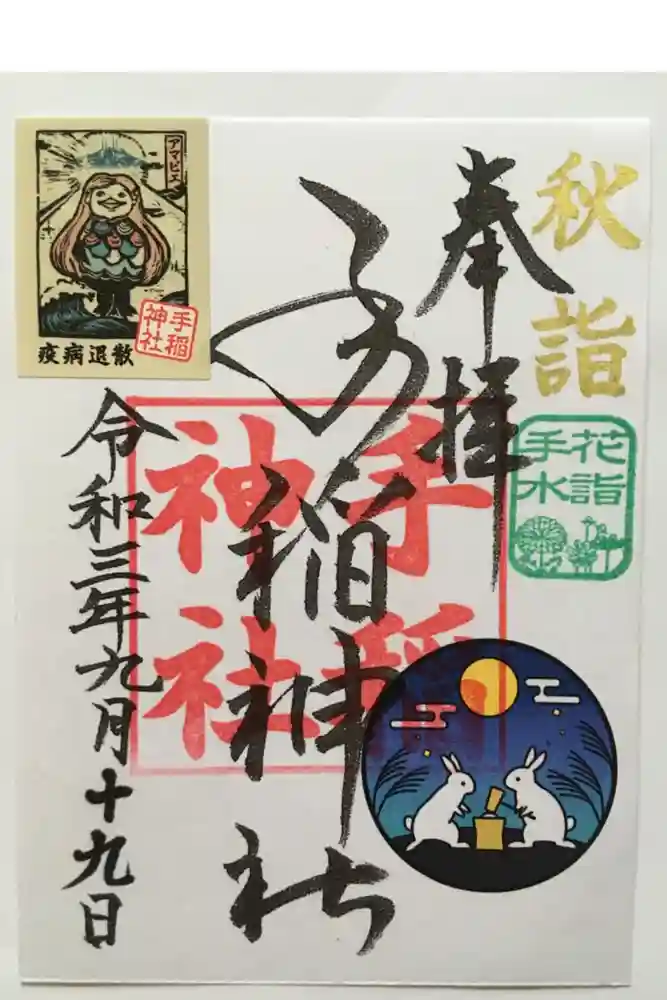 秋詣
花詣
手水
奉拝
手稲神社
手稲
神社
令和三年九月十九日
アマビエ
疫病退散
手稲
神社